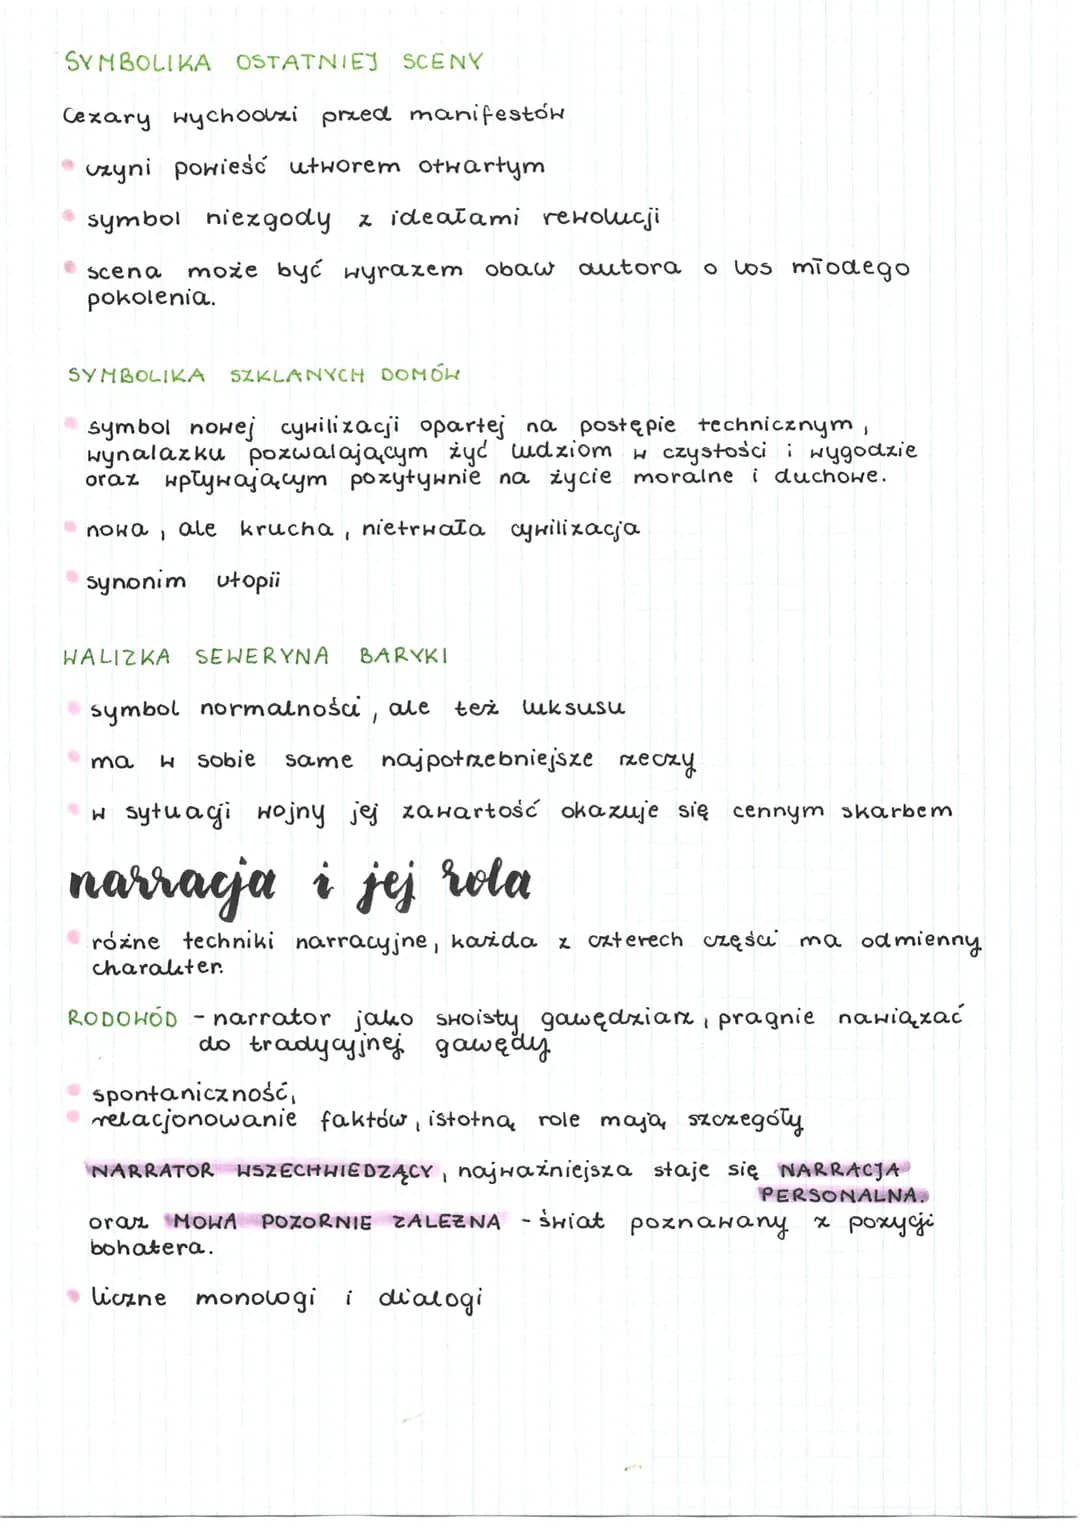 SYMBOLIKA OSTATNIEJ SCENY
Cezary wychodzi przed manifestów
czyni powieść utworem otwartym
symbol niezgody z ideałami rewolucji
scena może być wyrazem obaw autora o los młodego
pokolenia.
SYMBOLIKA SZKLANYCH DOMÓW
symbol nowej cywilizacji opartej na postępie technicznym,
wynalazku pozwalającym żyć ludziom w czystości i wygodzie
oraz wpływającym pozytywnie na życie moralne i duchowe.
nowa, ale krucha, nietrwała cywilizacja
synonim utopii
WALIZKA SEWERYNA BARYKI
symbol normalności, ale też luksusu
ma w sobie same najpotrzebniejsze rzeczy
w sytuacji wojny jej zawartość okazuje się cennym skarbem
narracja i jej rola
różne techniki narracyjne, każda z czterech części ma odmienny
charakter.
RODOWÓD - narrator jako swoisty gawędziarz, pragnie nawiązać
do tradycyjnej gawędy
spontaniczność,
relacjonowanie faktów, istotną role mają szczegóły
NARRATOR WSZECHWIEDZĄCY, najważniejsza staje się NARRACJA
PERSONALNA.
oraz MOWA POZORNIE ZALEŻNA - świat poznawany z pozycji
bohatera.
liczne monologi i dialogi